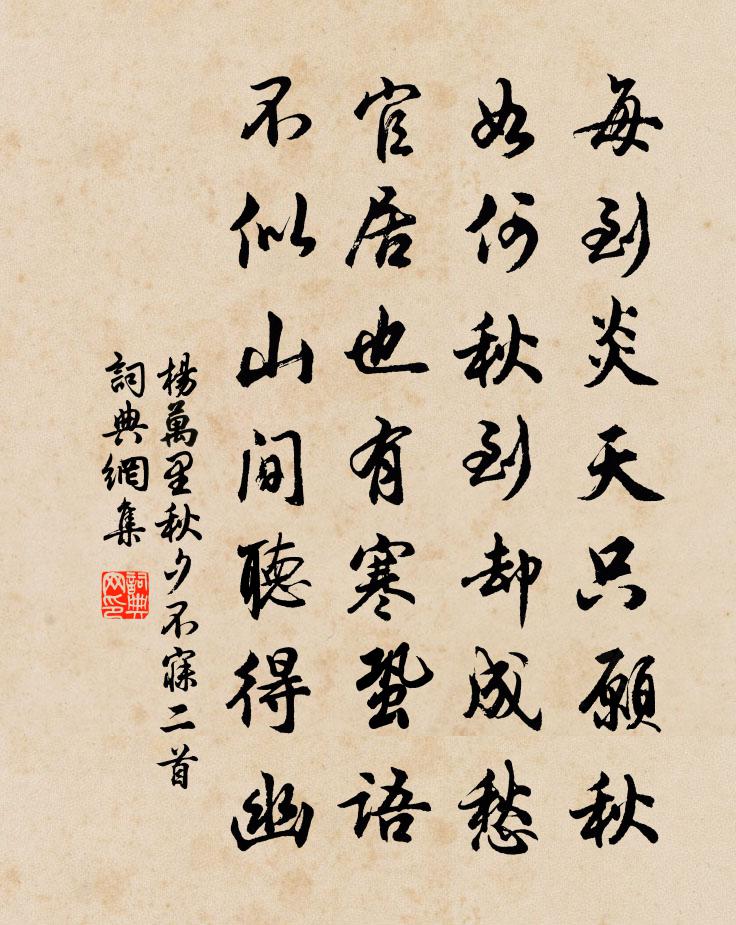 每到炎天只願秋
如何秋到却成愁
官居也有寒蛩語
不似山間聽得幽
楊萬里秋夕不寐二首
詞典網集
詞典网印